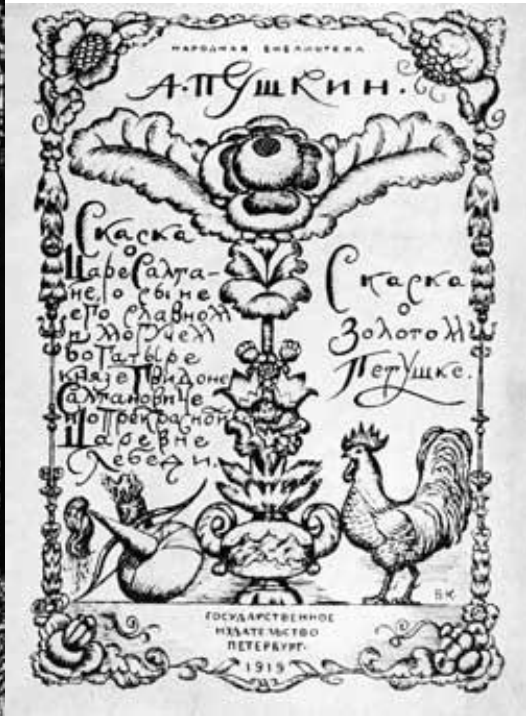 НАРОДНАЯ БИБЛИОТЕКА
А·ПУШКИН.
Скаска
о
Царе Салта-
не, о сыне
его славном
и могучем
богатыре
князе Гвидоне
Салтановиче
и о прекрасной
Царевне
Лебеди.
Скаска
о
Золотом
Петушке.
БК
ГОСУДАРСТВЕННОЕ
ИЗДАТЕЛЬСТВО
ПЕТЕРБУРГ·
1919